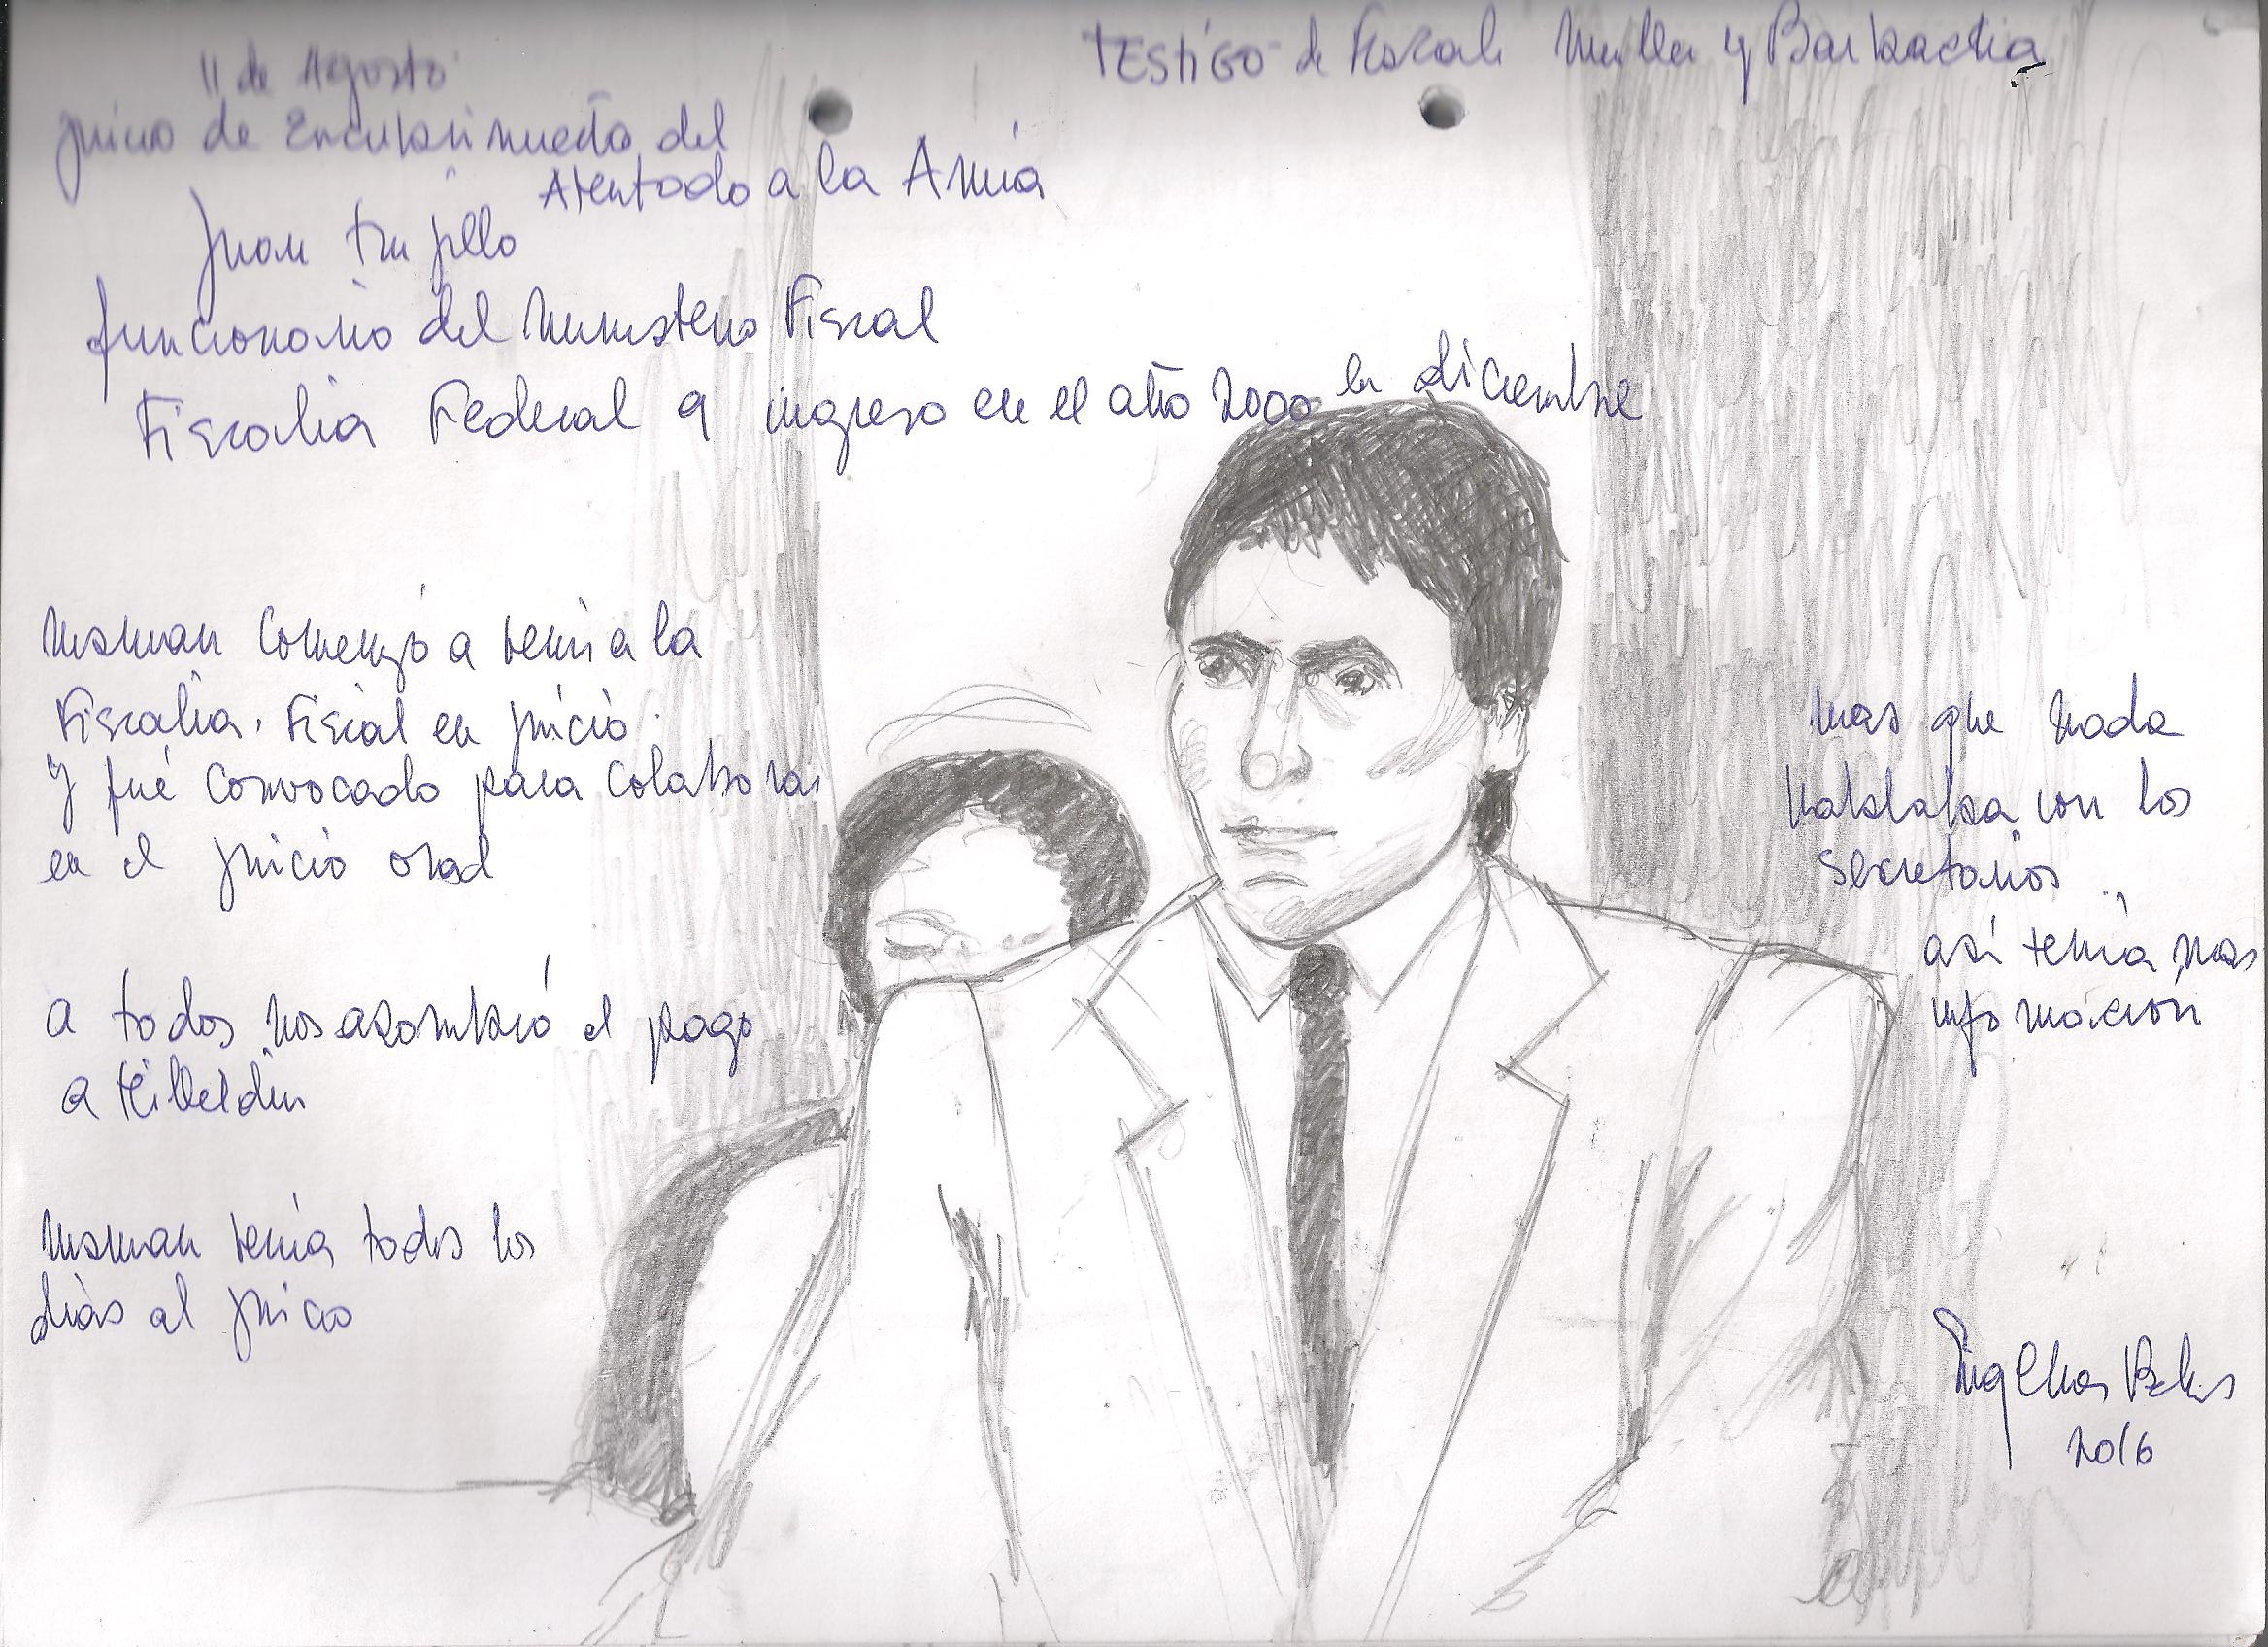 11 de Agosto
TESTIGO de Fiscales Mullen y Barbaccia
juicio de Encubrimiento del
Atentado a la Amia
Juan Trujillo
funcionario del Ministerio Fiscal
Fiscalia Federal 9 ingreso en el año 2000 en diciembre
Nisman comenzó a venir a la
Fiscalia. Fiscal en juicio.
y fué convocado para colaborar
en el juicio oral
a todos nos asombró el pago
a Telleldin
Nisman venía todos los
diás al juicio
mas que nada
hablaba con los
secretarios
así tenía mas
información
2016